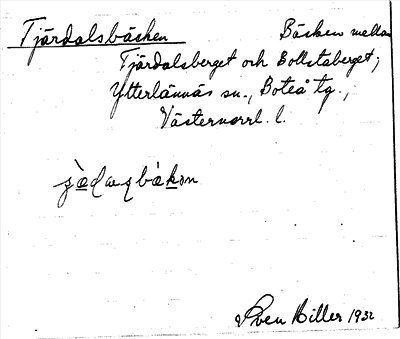 Tjärdalsbäcken Bäcken mellan
Tjärdalsberget och Bollstaberget;
Ytterlännäs sn., Boteå tg.,
Västernorrl. l.
Sven Hiller 1932